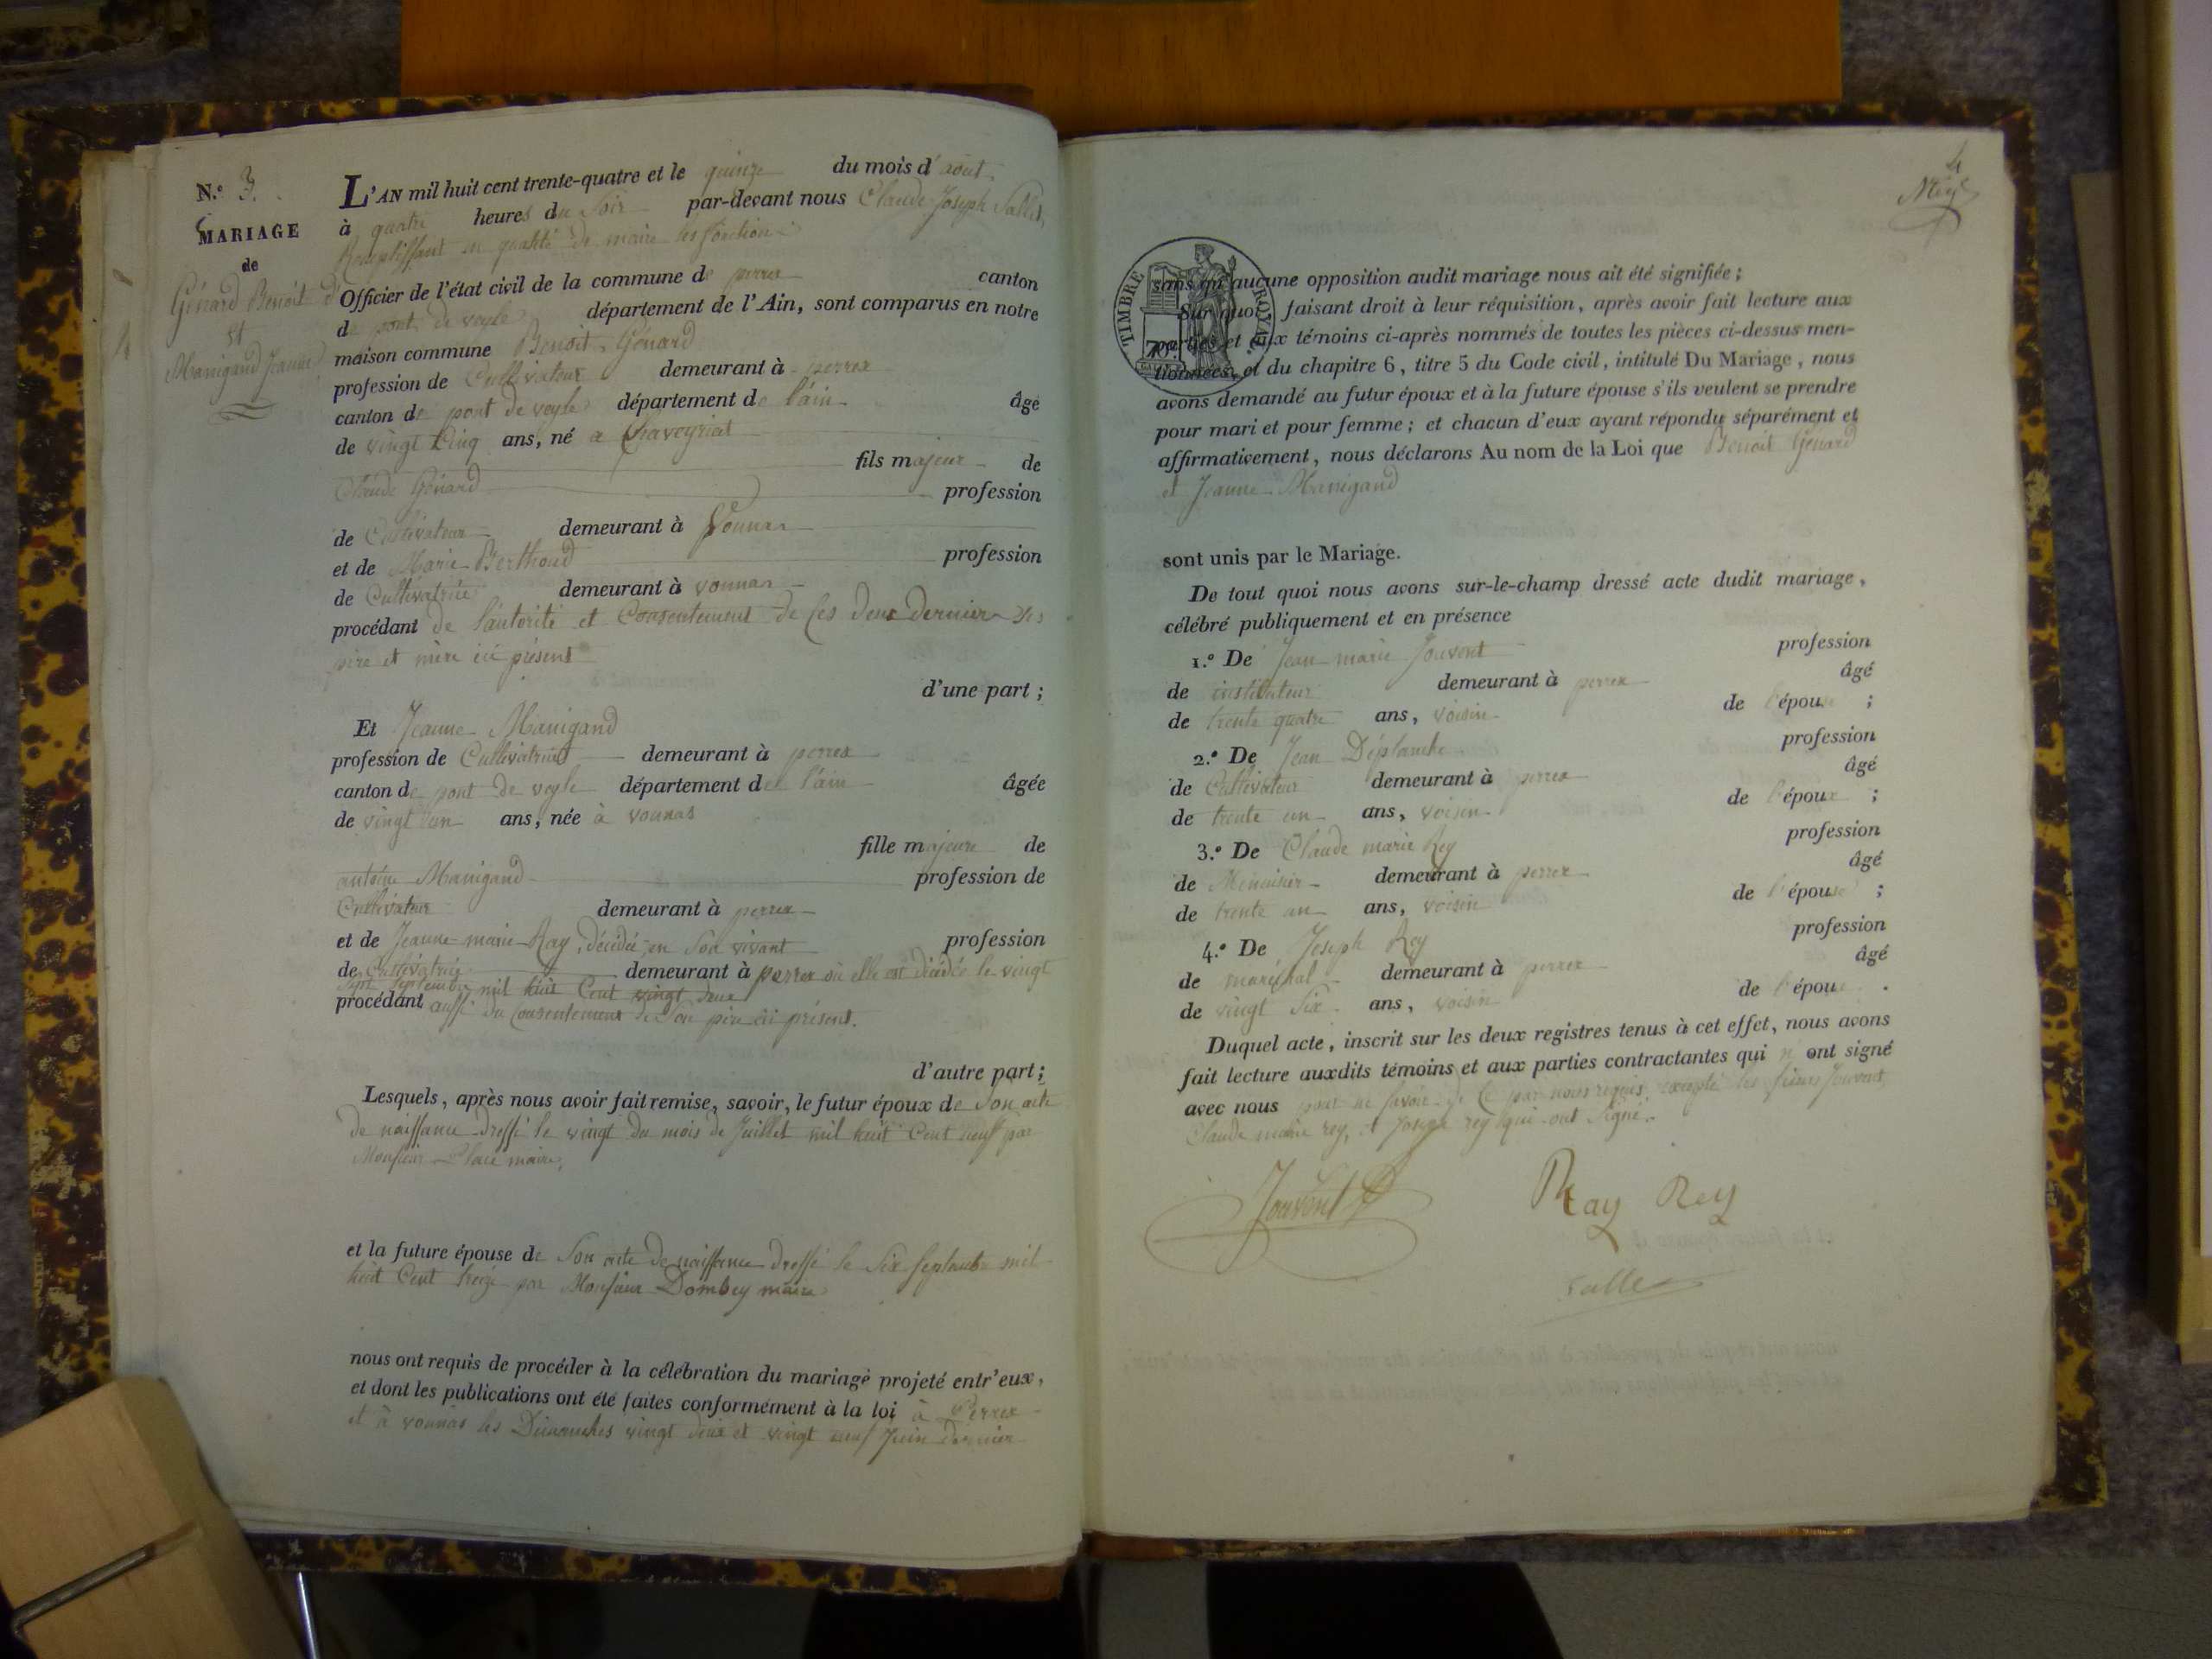 N.º 3.
MARIAGE
de
Génard Benoit
et
Manigand Jeanne
L'AN mil huit cent trente-quatre et le quinze du mois d'aout
à quatre heures du soir par-devant nous Claude Joseph
Remplissant en qualité de maire les fonctions
Officier de l'état civil de la commune de perrex canton
de pont de veyle département de l'Ain, sont comparus en notre
maison commune Benoit Génard
profession de Cultivateur demeurant à perrex
canton de pont de veyle département de l'ain âgé
de vingt cinq ans, né a Chaveyriat
fils majeur de
Claude Génard profession
de Cultivateur demeurant à Vonnas
et de Marie Berthoud profession
de Cultivatrice demeurant à vonnas
procédant de l'autorité et consentement de ces deux derniers ses
père et mère ici présent
d'une part ;
Et Jeanne Manigand
profession de Cultivatrice demeurant à perrex
canton de pont de veyle département de l'ain âgée
de vingt un ans, née à vonnas
fille majeure de
antoine Manigand profession de
Cultivateur demeurant à perrex
et de Jeanne marie Ray, décédée en son vivant profession
de Cultivatrice demeurant à perrex où elle est décédée le vingt
sept septembre mil huit Cent vingt deux
procédant aussi du consentement de son père ici présent.
d'autre part ;
Lesquels, après nous avoir fait remise, savoir, le futur époux de son acte
de naissance dressé le vingt du mois de Juillet mil huit Cent neuf par
Monsieur Place maire,
et la future épouse de son acte de naissance dressé le six septembre mil
huit Cent treize par Monsieur Dombey maire
nous ont requis de procéder à la célébration du mariage projeté entr'eux,
et dont les publications ont été faites conformément à la loi à Perrex
et à vonnas les Dimanches vingt deux et vingt neuf Juin dernier
4
TIMBRE ROYAL
70c.
sans qu'aucune opposition audit mariage nous ait été signifiée ;
Sur quoi, faisant droit à leur réquisition, après avoir fait lecture aux
parties et aux témoins ci-après nommés de toutes les pièces ci-dessus men-
tionnées, et du chapitre 6, titre 5 du Code civil, intitulé Du Mariage, nous
avons demandé au futur époux et à la future épouse s'ils veulent se prendre
pour mari et pour femme ; et chacun d'eux ayant répondu séparément et
affirmativement, nous déclarons Au nom de la Loi que Benoit Génard
et Jeanne Manigand
sont unis par le Mariage.
De tout quoi nous avons sur-le-champ dressé acte dudit mariage,
célébré publiquement et en présence
1.º De Jean marie Jouvent profession
de instituteur demeurant à perrex âgé
de trente quatre ans, voisin de l'épouse ;
2.º De Jean Déplanche profession
de Cultivateur demeurant à perrex âgé
de trente un ans, voisin de l'époux ;
3.º De Claude marie Rey profession
de Menuisier demeurant à perrex âgé
de trente un ans, voisin de l'épouse ;
4.º De Joseph Rey profession
de maréchal demeurant à perrex âgé
de vingt six ans, voisin de l'épouse .
Duquel acte, inscrit sur les deux registres tenus à cet effet, nous avons
fait lecture auxdits témoins et aux parties contractantes qui n'ont signé
avec nous pour ne savoir de ce par nous requis, excepté les sieurs Jouvent,
Claude marie rey, et Joseph rey qui ont signé.
Jouvent Ray Rey